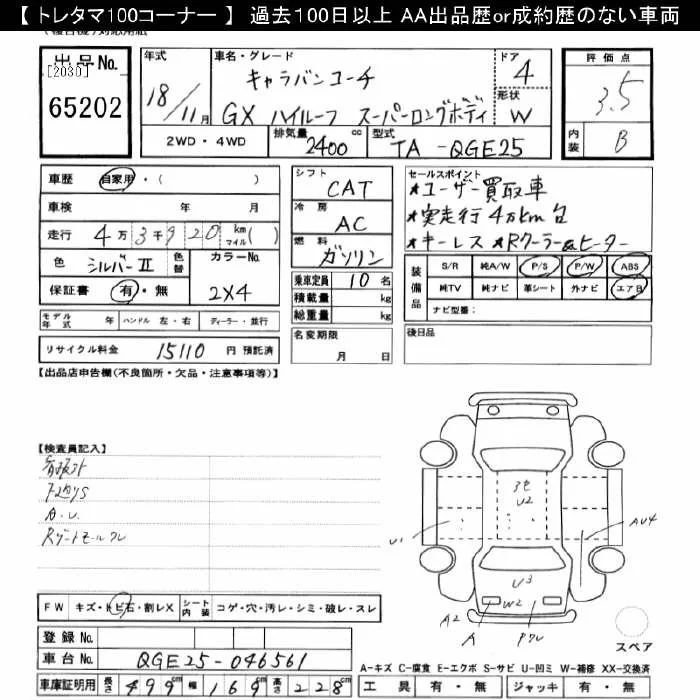 【 トレタマ100コーナー 】 過去100日以上 AA出品歴or成約歴のない車両
出品No.
[2030]
65202
年式
18/11月
車名・グレード
キャラバンコーチ
GX ハイルーフ スーパーロングボディ
ドア
4
形状
W
2WD・4WD
排気量
2400 cc
型式
TA-QGE25
評価点
3.5
内装
B
車歴 自家用・( )
車検 年 月
走行 4万3千920 km マイル( )
色 シルバーⅡ 色替 カラーNo.
2X4
保証書 有・無
モデル年式 年 ハンドル 左・右 ディーラー・並行
リサイクル料金 15110 円 預託済
シフト
CAT
冷房
AC
燃料
ガソリン
乗車定員 10 名
積載量 kg
総重量 kg
名変期限
月 日
セールスポイント
★ユーザー買取車
★実走行4万km台
★キーレス ★Rクーラー&ヒーター
装備品
S/R 純A/W P/S P/W ABS
純TV 純ナビ 革シート 外ナビ エアB
ナビ型番:
後日品
【出品店申告欄(不良箇所・欠品・注意事項等)】
【検査員記入】
A.U.
U2
U1
AU4
U3
W2
A2
A
FW キズ・トビ石・割レX シート内装 コゲ・穴・汚レ・シミ・破レ・スレ
スペア
登録No.
車台No. QGE25-046561
車庫証明用 長さ 499cm 幅 169cm 高さ 228cm
A-キズ C-腐食 E-エクボ S-サビ U-凹ミ W-補修 XX-交換済
工具 有・無 ジャッキ 有・無